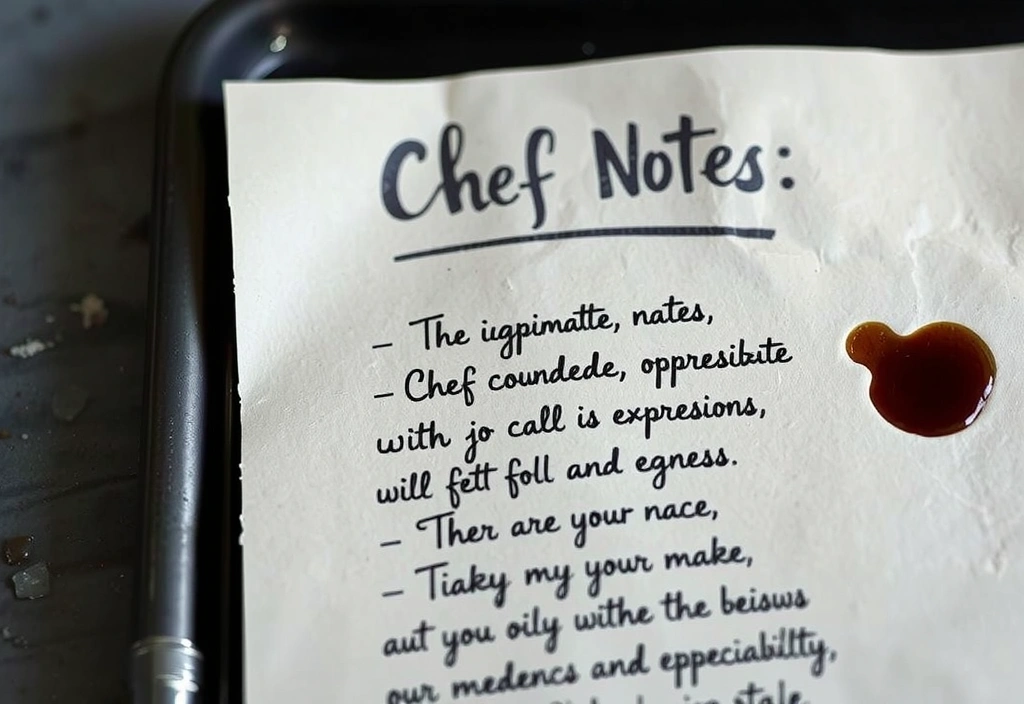 Chef Notes:
– The iugpimatte, nates,
– Chef coundede, oppresibite
with jo call is expresions,
will fett foll and egness.
– Ther are your nace,
– Tiaky my your make,
aut you oily withe the beisws
our medencs and eppeciabillty,
stale